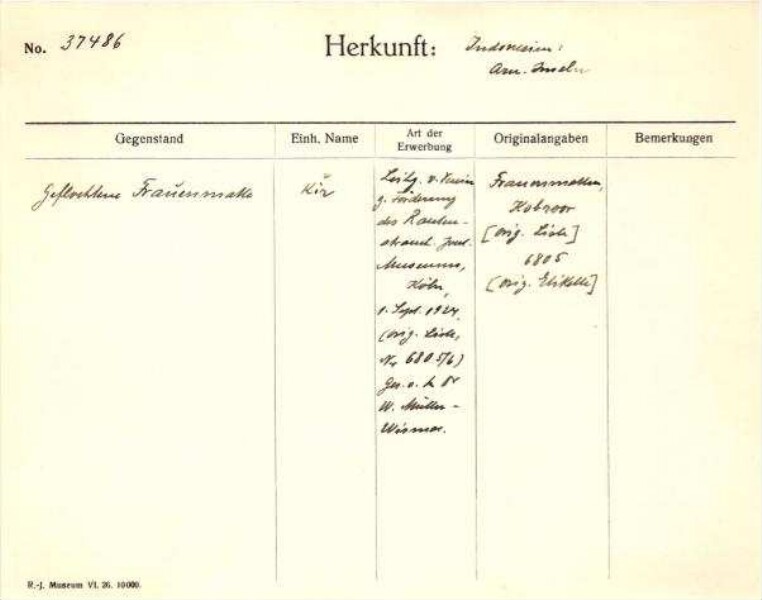 No. 37486
Herkunft: Indonesien:
Aru-Inseln
Gegenstand
Einh. Name
Art der
Erwerbung
Originalangaben
Bemerkungen
Geflochtene Frauenmatte
Kir
Leihg. v. Verein
z. Förderung
des Rauten-
strauch-Joest-
Museums,
Köln,
1. Sept. 1927.
(orig. Liste,
Nr 6805/6)
Ges. v. Dr
W. Müller-
Wismar.
Frauenmatten,
Kobroor
[orig. Liste]
6805
[orig. Etikette]
R.-J. Museum VI. 26. 10000.